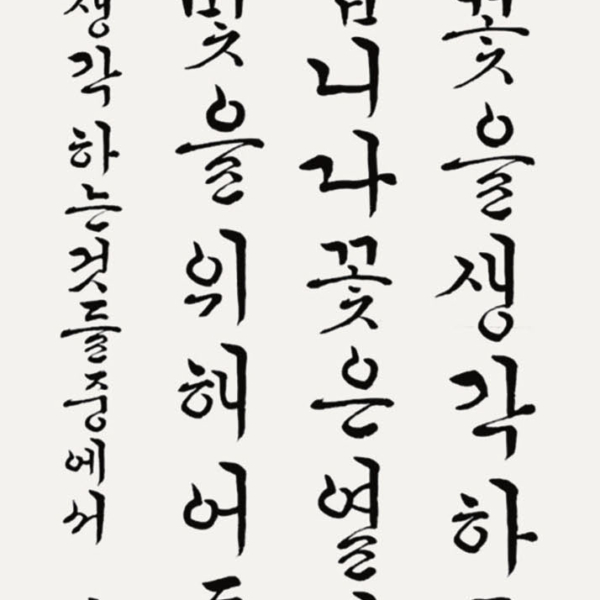 꽃을생각하
니나꽃은열
빛을위해어
생각하는것들중에서